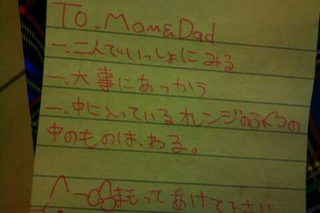 To. Mom&Dad
一、二人でいっしょにみる
一、大事にあつかう
一、中に入っているオレンジのふくろの
中のものは、わる。
まもってあけて下さい